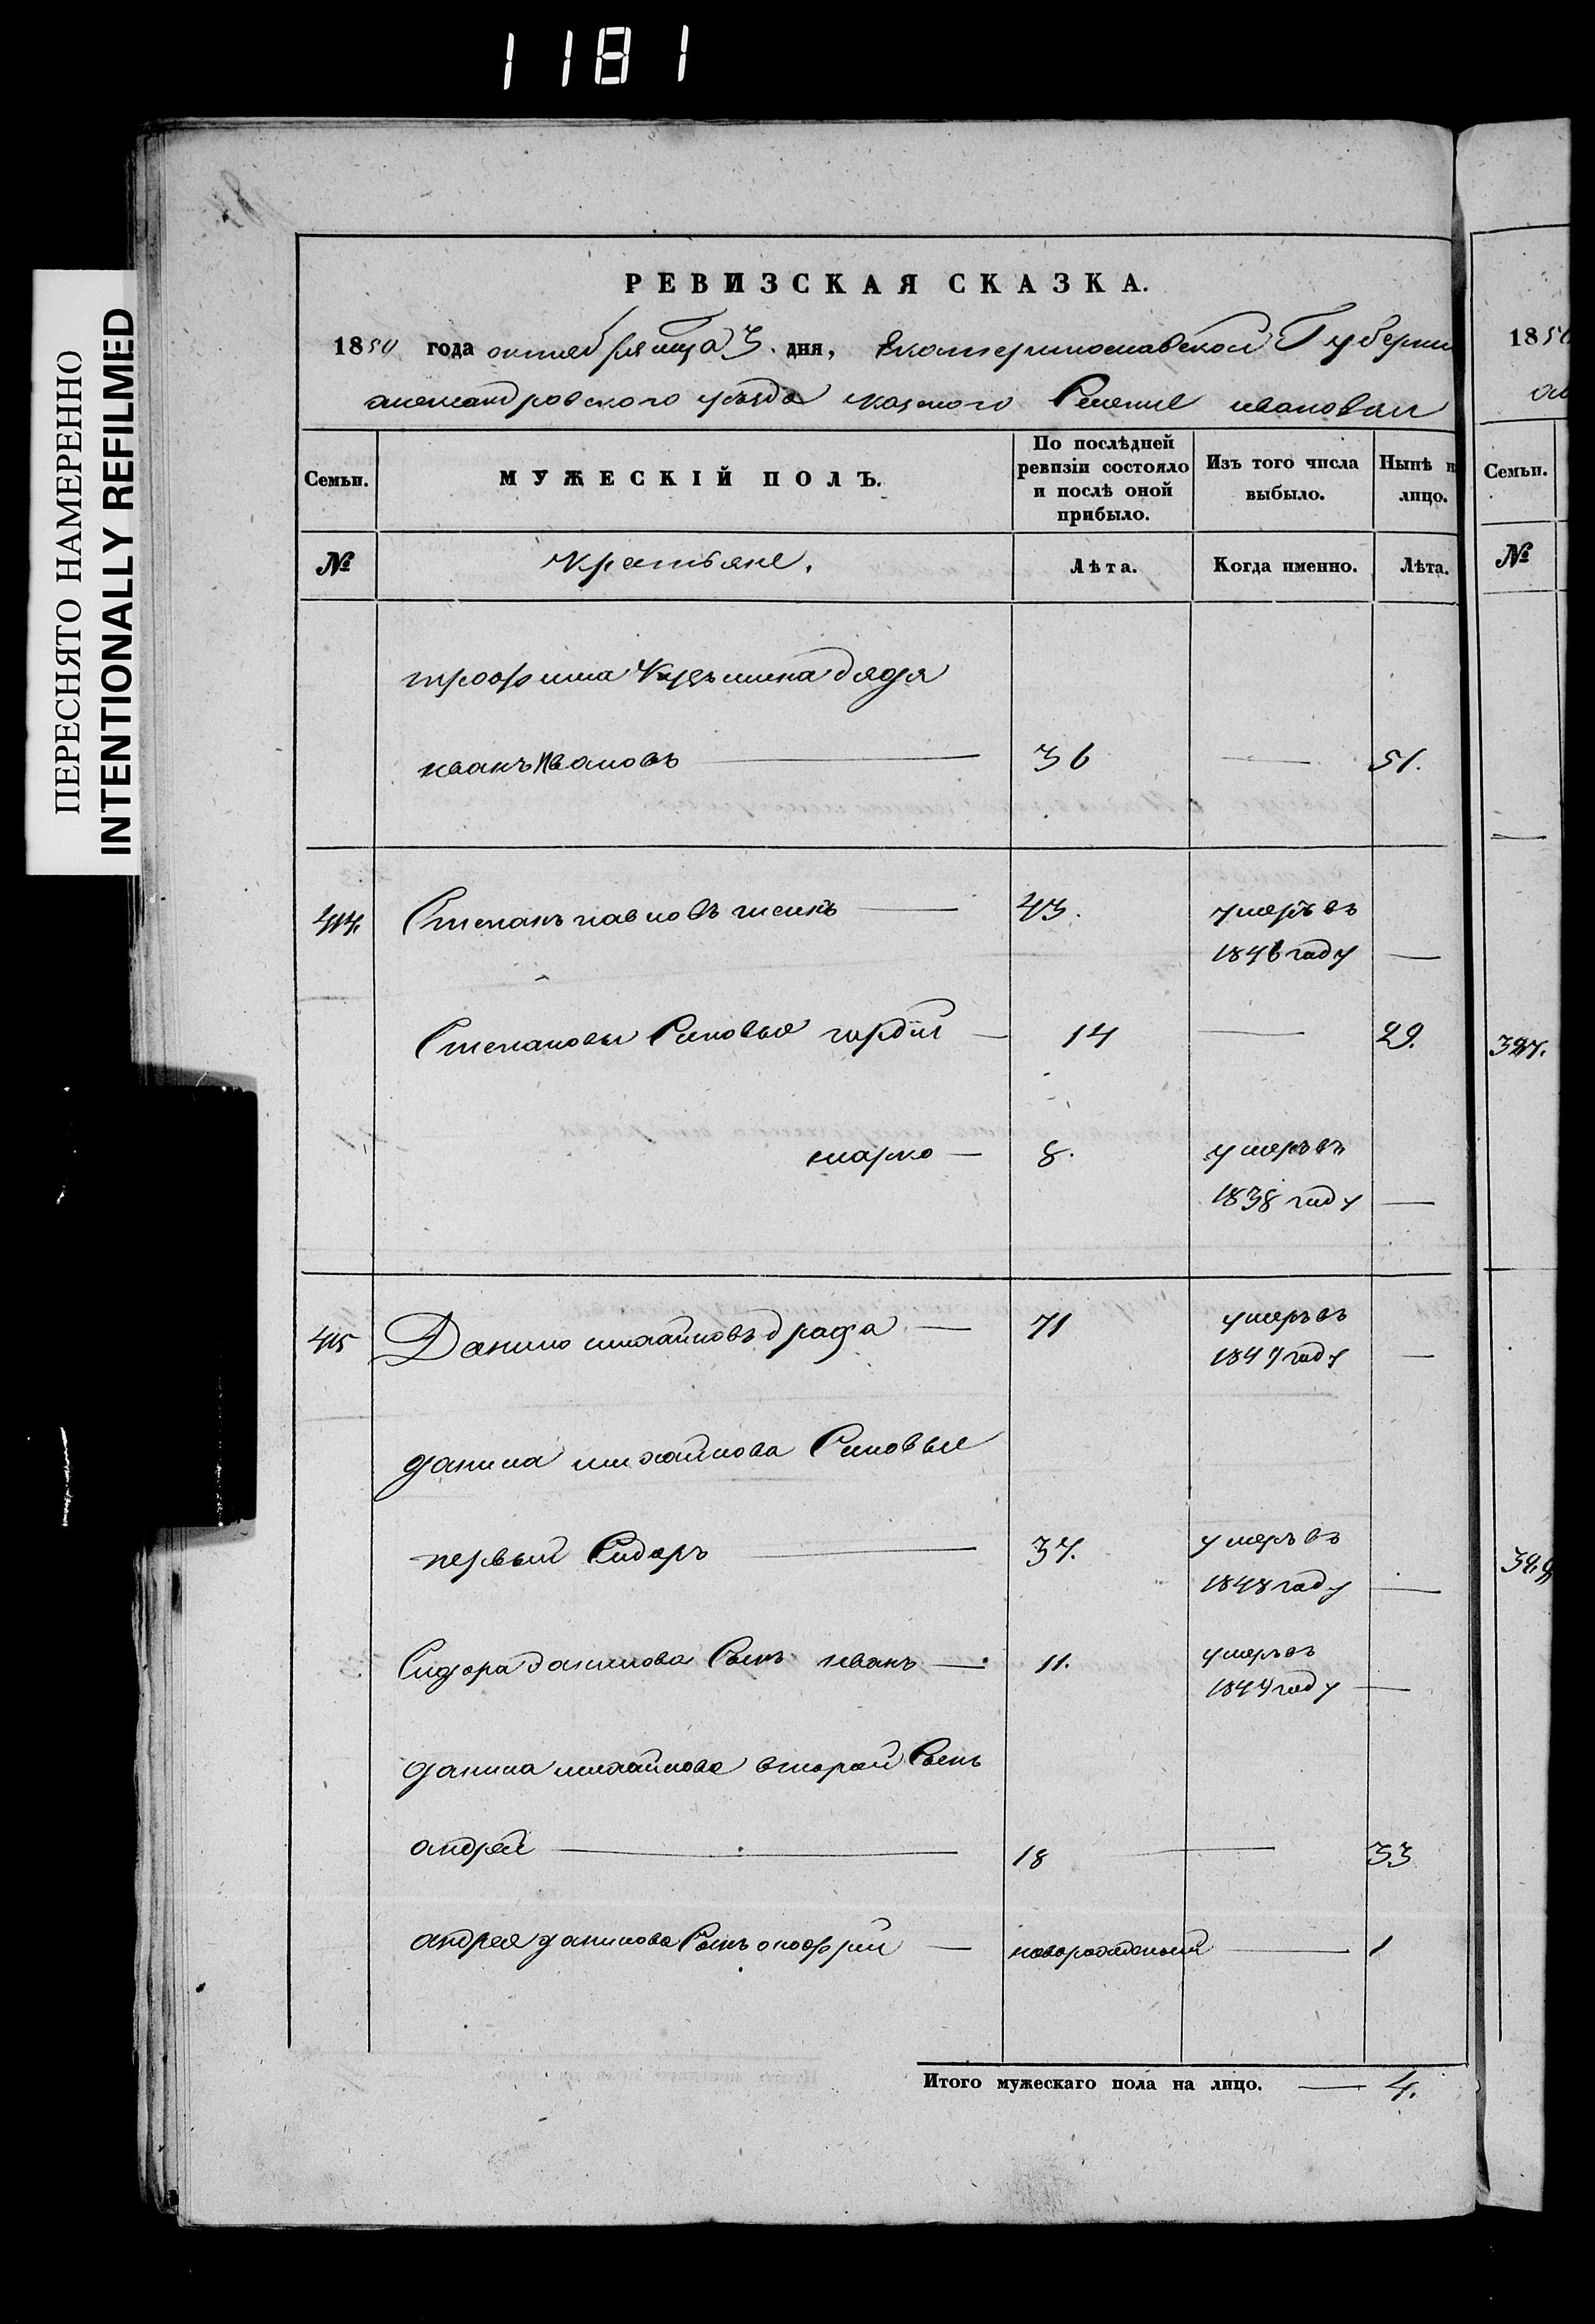 1181
ПЕРЕСНЯТО НАМЕРЕННО
INTENTIONALLY REFILMED
РЕВИЗСКАЯ СКАЗКА.
1850 года октября мца 3. дня, Екатеринославской Губерни
александровского уезда казеного Селение ивановки
Семьи. МУЖЕСКІЙ ПОЛЪ. По послѣдней ревизіи состояло и послѣ оной прибыло. Изъ того числа выбыло. Нынѣ н лицо.
№ Крестьяне. Лѣта. Когда именно. Лѣта.
трофима Кузьмина дядя
иванъ Ивановъ 36 — 51.
414. Степанъ павловъ 43. умеръ въ
1846 году —
Степановы Сыновья гордій — 14 — 29.
марко — 8. умеръ въ
1838 году —
415 Данило михайловъ драга — 71 умеръ въ
1847 году —
данила михайлова Сыновья
первый Сидоръ — 37. умеръ въ
1848 году —
Сидора данилова Сынъ иванъ — 11. умеръ въ
1844 году —
данила михайлова второй Сынъ
андрей — 18 — 33
андрея данилова Сынъ онофрий — новорожденый — 1
Итого мужескаго пола на лицо. — 4.
1850
Семьи.
№